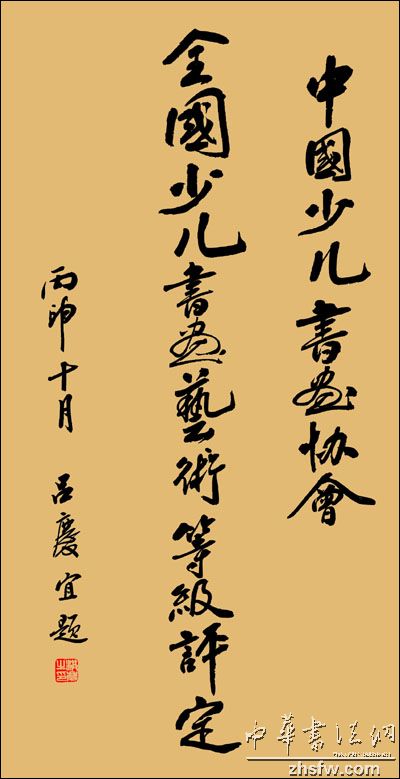 中國少儿書畫协會
全國少儿書畫藝術等級評定
丙申十月
呂慶宜題
中華書法網
zhsfw.com